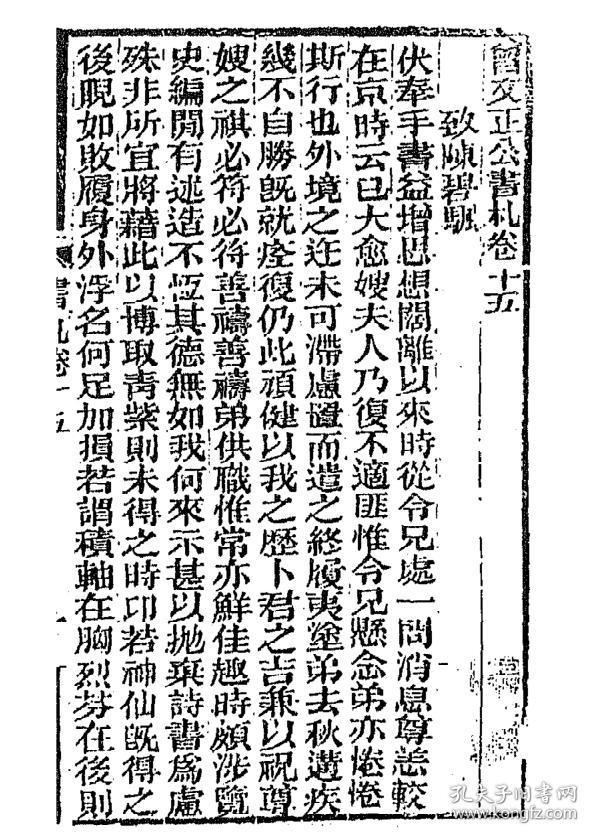 曾文正公書札卷十五
致陳碧颿
伏奉手書益增思想闊離以來時從令兄處一問消息尊恙較
在京時云已大愈嫂夫人乃復不適匪惟令兄懸念弟亦惓惓
斯行也外境之迕未可滯慮置而遣之終履夷塗弟去秋遘疾
幾不自勝旣就痊復仍此頑健以我之歷卜君之吉兼以祝尊
嫂之祺必符必符善禱善禱弟供職惟常亦鮮佳趣時頗涉覽
史編閒有述造不恆其德無如我何來示甚以拋棄詩書爲慮
殊非所宜將藉此以博取靑紫則未得之時卬若神仙旣得之
後睨如敗履身外浮名何足加損若謂積軸在胸烈芬在後則
書札卷十五
一
孔夫子旧书网
www.kongfz.com